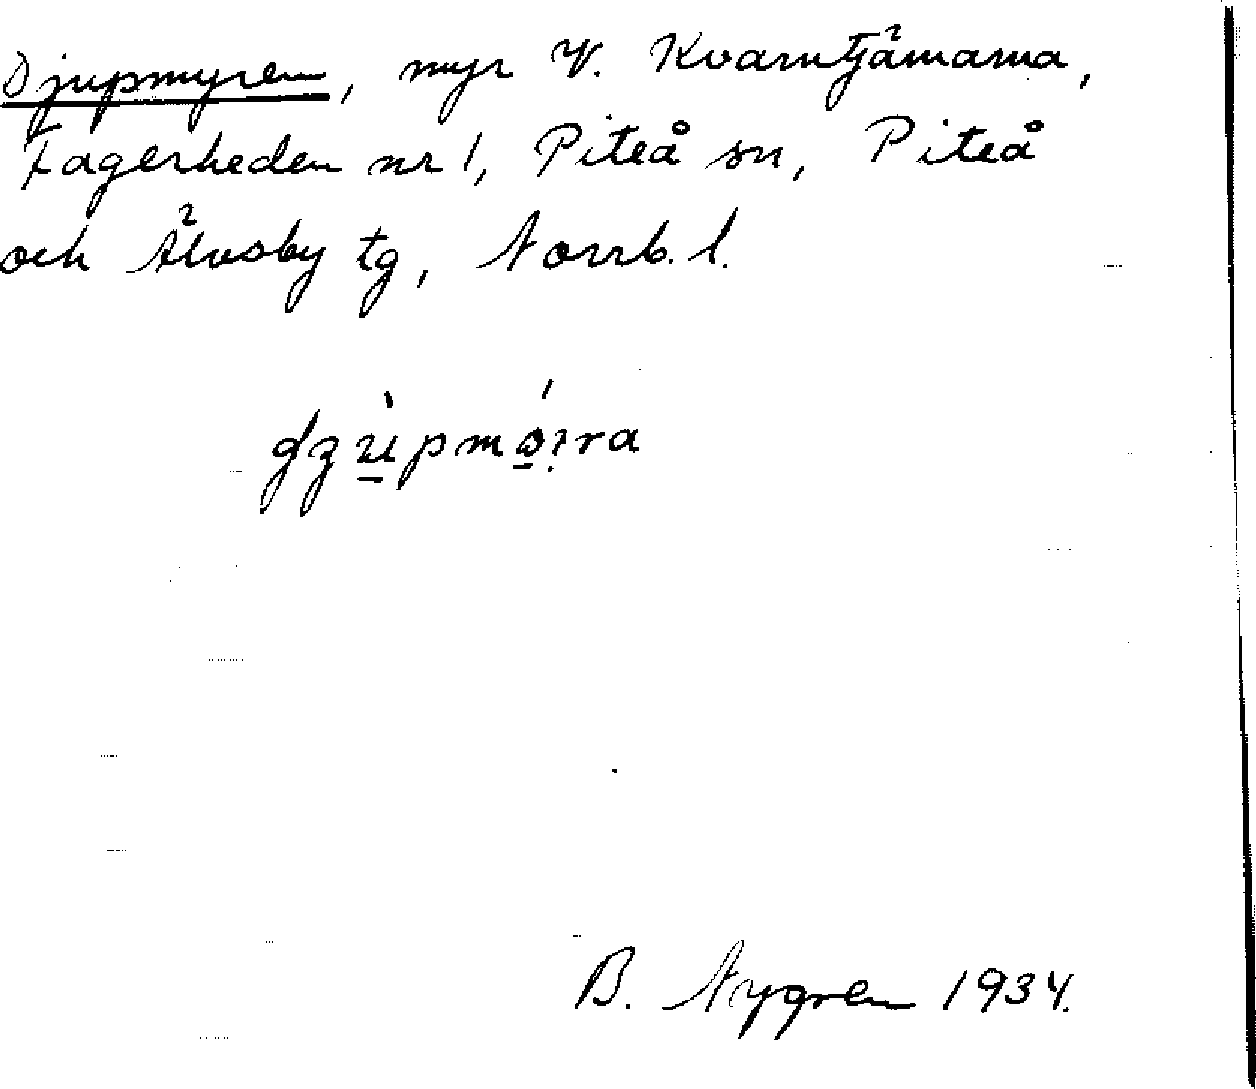 Djupmyren, myr V. Kvarntjärnarna,
Fagerheden nr 1, Piteå sn, Piteå
och Älvsby tg, Norrb. l.
B. Nygren 1934.